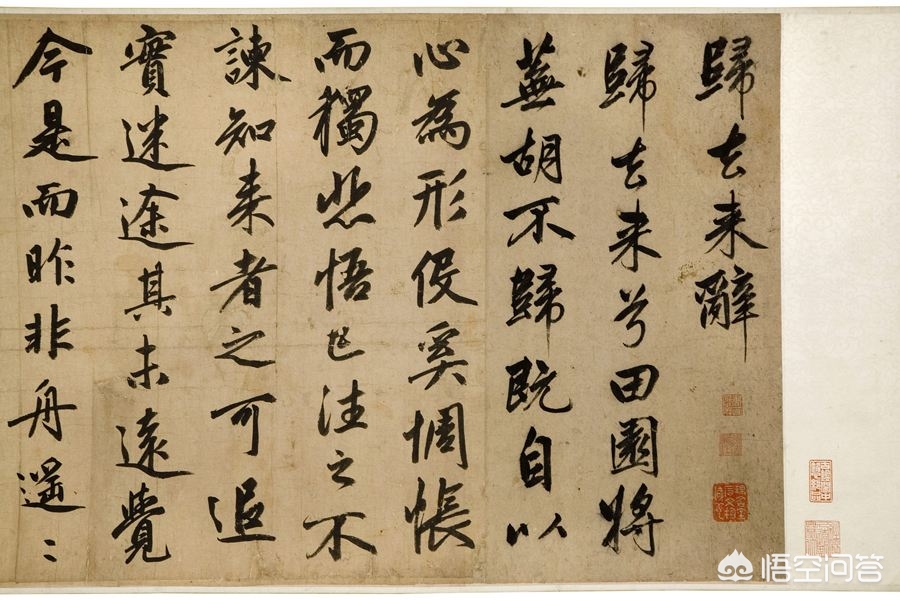 歸去来辭
歸去来兮田園将
蕪胡不歸既自以
心為形役奚惆悵
而獨悲悟已往之不
諫知来者之可追
實迷途其未遠覺
今是而昨非舟遥〻
悟空问答